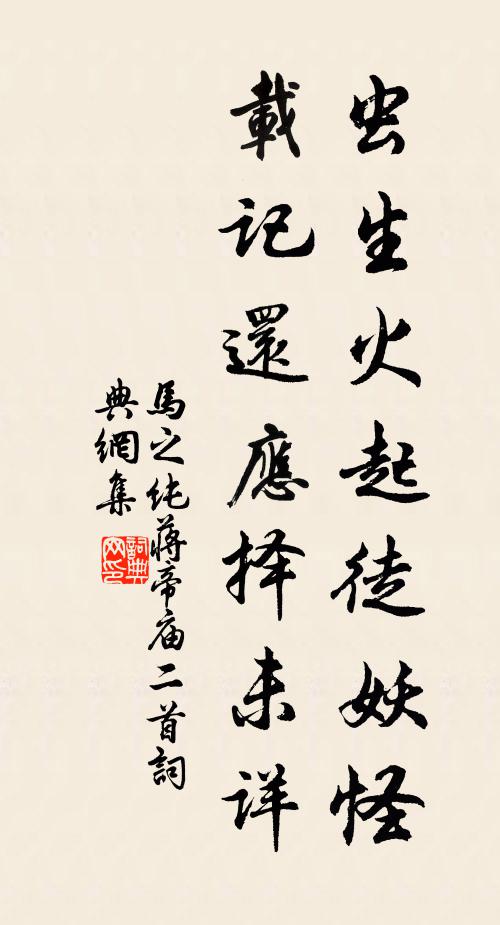 虫生火起徒妖怪
載记還應择未详
馬之纯蔣帝庙二首詞
典網集
詞典网印